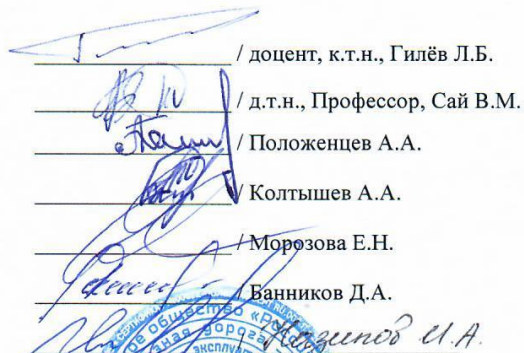 / доцент, к.т.н., Гилёв Л.Б.
/ д.т.н., Профессор, Сай В.М.
/ Положенцев А.А.
/ Колтышев А.А.
/ Морозова Е.Н.
/ Банников Д.А.
/ И.А.
общество
дорога